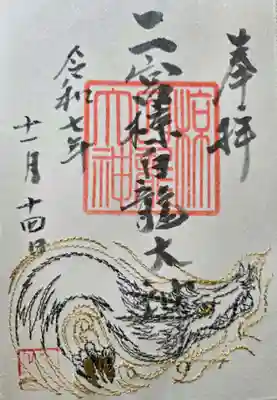 奉拝
二宮白龍大神
令和七年
十一月十四日